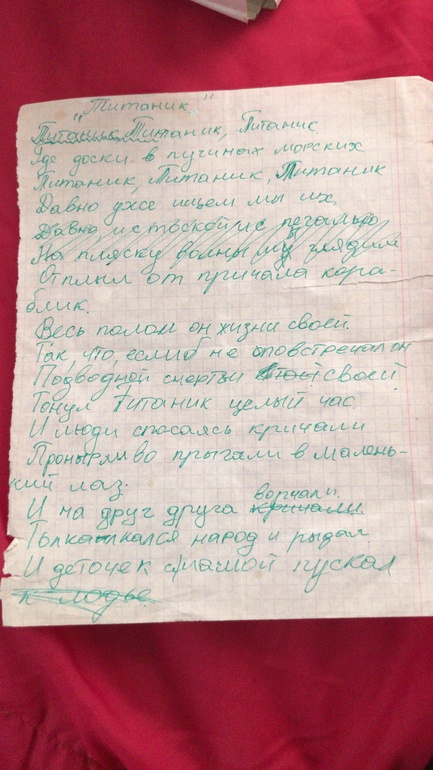 "Титаник"
Титаник Титаник, Титаник
Где доски в пучинах морских
Титаник, Титаник, Титаник
Давно уже ищем мы их.
Давно и с тоской и с печалью
На пляску волны мы глядим
Отплыл от причала кора-
блик.
Весь полон он жизни своей.
Так что, еслиб не повстречал он
Подводной смерти своей
Тонул Титаник целый час.
И люди спасаясь кричали
Проныряиво прыгали в малень-
кий лаз.
И на друг друга кричали ворчали.
Толкался народ и рыдал
И деточек пускал
к лодке.